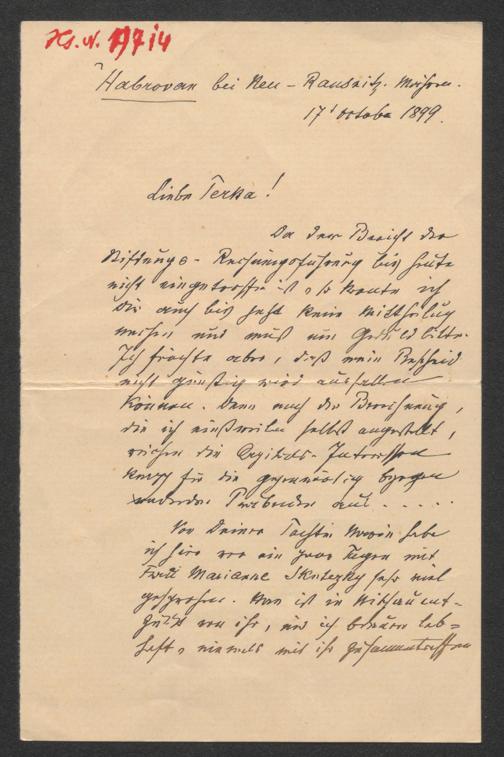 Hs. N. 197/4
Habrovan bei Neu-Rausnitz. Mähren.
17t October 1899.
Liebe Terka!
Da der Bericht der
Stiftungs-Rechnungsführung bis heute
nicht eingetroffen ist, so konnte ich
Dir auch bis jetzt keine Mittheilung
machen, und muß um Geduld bitten.
Ich fürchte aber, daß mein Bescheid
nicht günstig wird ausfallen
können. Denn nach der Berechnung,
die ich einstweilen selbst angestellt,
reichen die Capitals-Interessen
knapp für die gegenwärtig
aus.....
Von Deiner Tochter habe
ich hier vor ein paar Tagen mit
Frau Marianne Skutezky sehr viel
gesprochen. Man ist in ent-
zückt von ihr, und ich bedaure leb-
haft, niemals mit ihr zusammentreffen